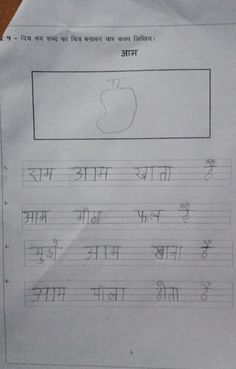 प्र ५ - दिय गय शब्द का चित्र बनाकर चार वाक्य लिखिय।
आम
1. राम आम खाता है
2. आम मीठा फल है
3. मुझे आम खाना है
4. आम पीला होता है